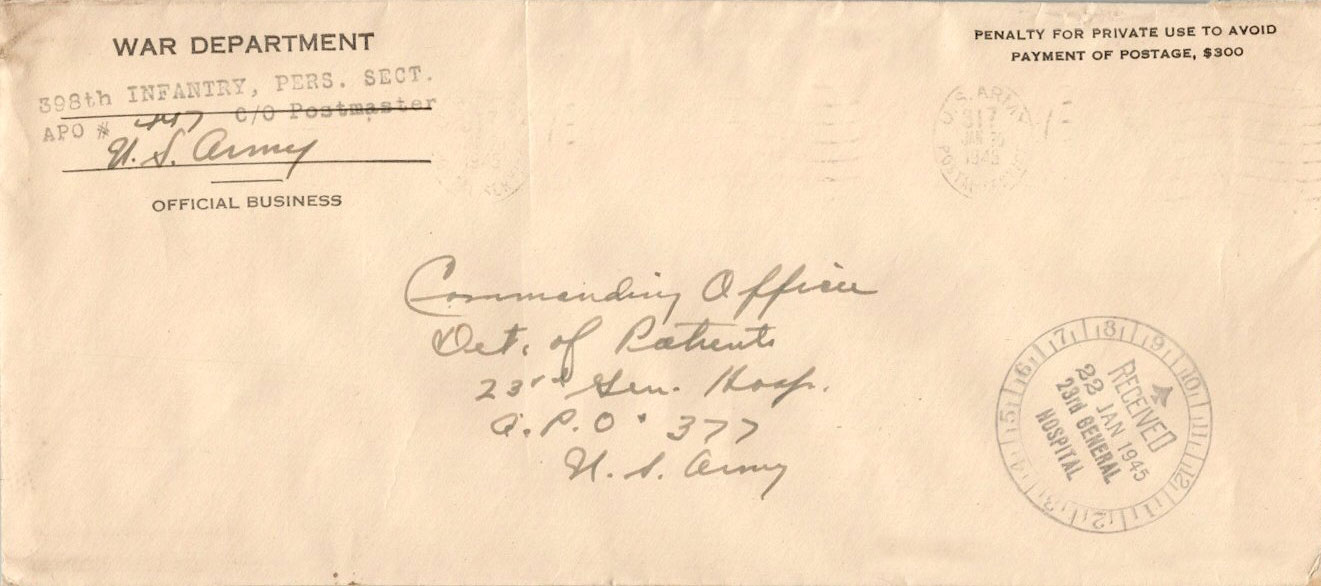 WAR DEPARTMENT
398th INFANTRY, PERS. SECT.
APO # 447 C/O Postmaster
U. S. Army
OFFICIAL BUSINESS
PENALTY FOR PRIVATE USE TO AVOID
PAYMENT OF POSTAGE, $300
U.S. ARMY
817
JAN
1945
POSTAL SERVICE
Commanding Officer
Det. of Patients
23rd Gen. Hosp.
A.P.O. 377
U. S. Army
1 2 3 4 5 6 7 8 9 10 11 12
RECEIVED
22 JAN 1945
23rd GENERAL
HOSPITAL